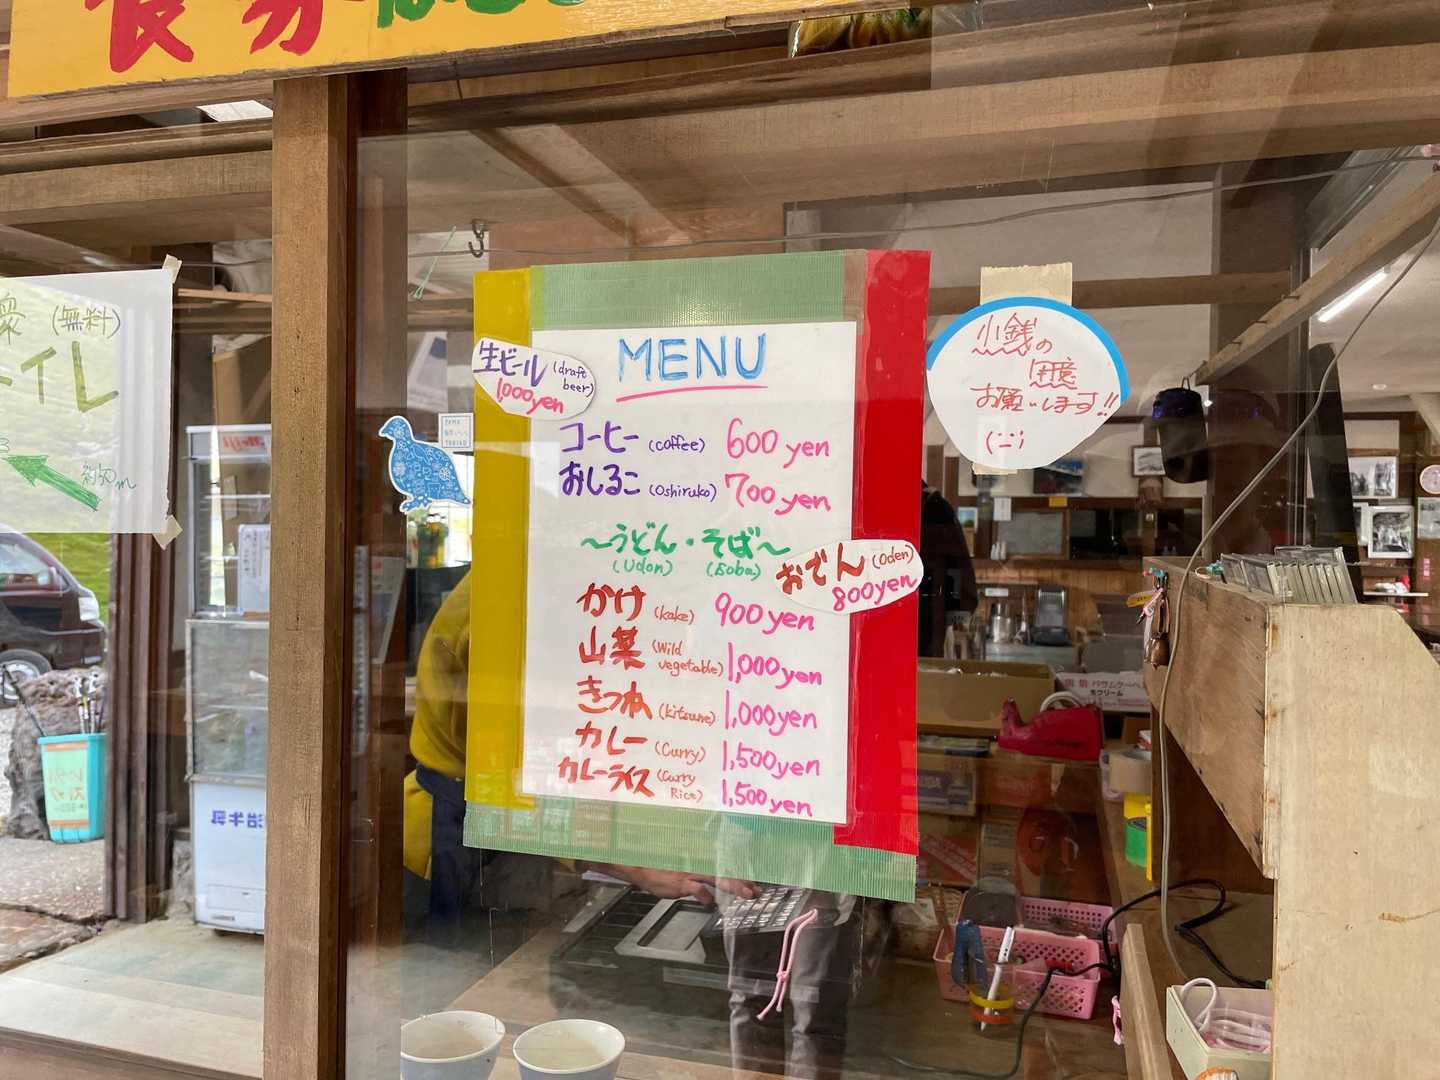 食券
衆 (無料)
イレ
約50m
MENU
生ビール (draft beer)
1,000yen
コーヒー (coffee) 600 yen
おしるこ (Oshiruko) 700 yen
～うどん・そば～
(Udon) (Soba)
おでん (Oden)
800yen
かけ (kake) 900 yen
山菜 (Wild vegetable) 1,000yen
きつね (kitsune) 1,000yen
カレー (Curry) 1,500yen
カレーライス (Curry Rice) 1,500yen
小銭の
用意
お願いします!!